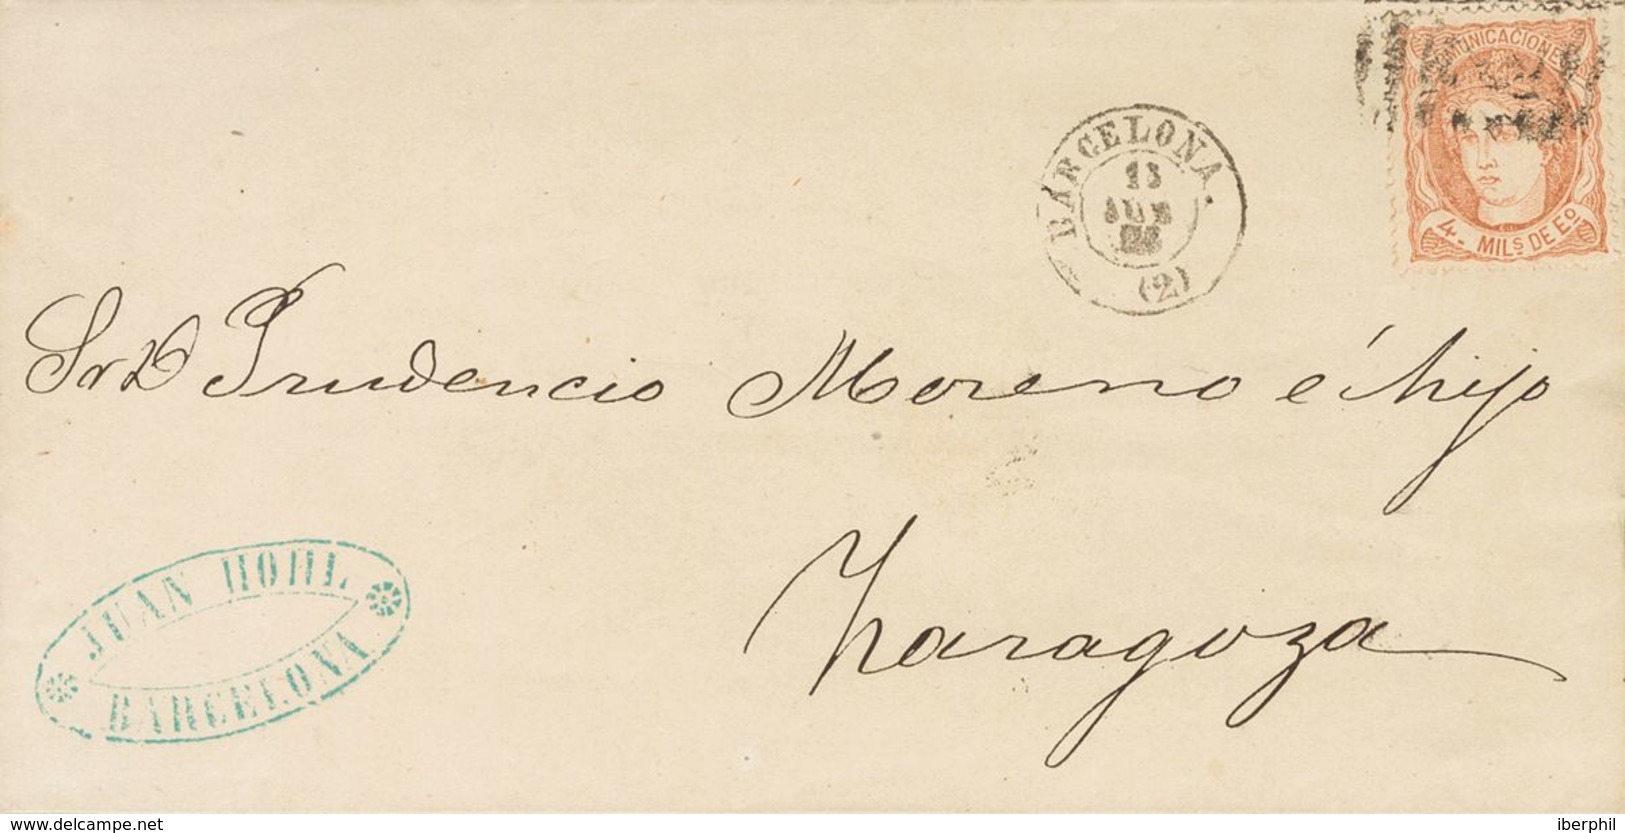 COMUNICACIONES
4. MILS DE EO
BARCELONA.
13
(2)
Sr D Prudencio Moreno é hijo
Zaragoza
JUAN HOHL
BARCELONA
www.delcampe.net
iberphil